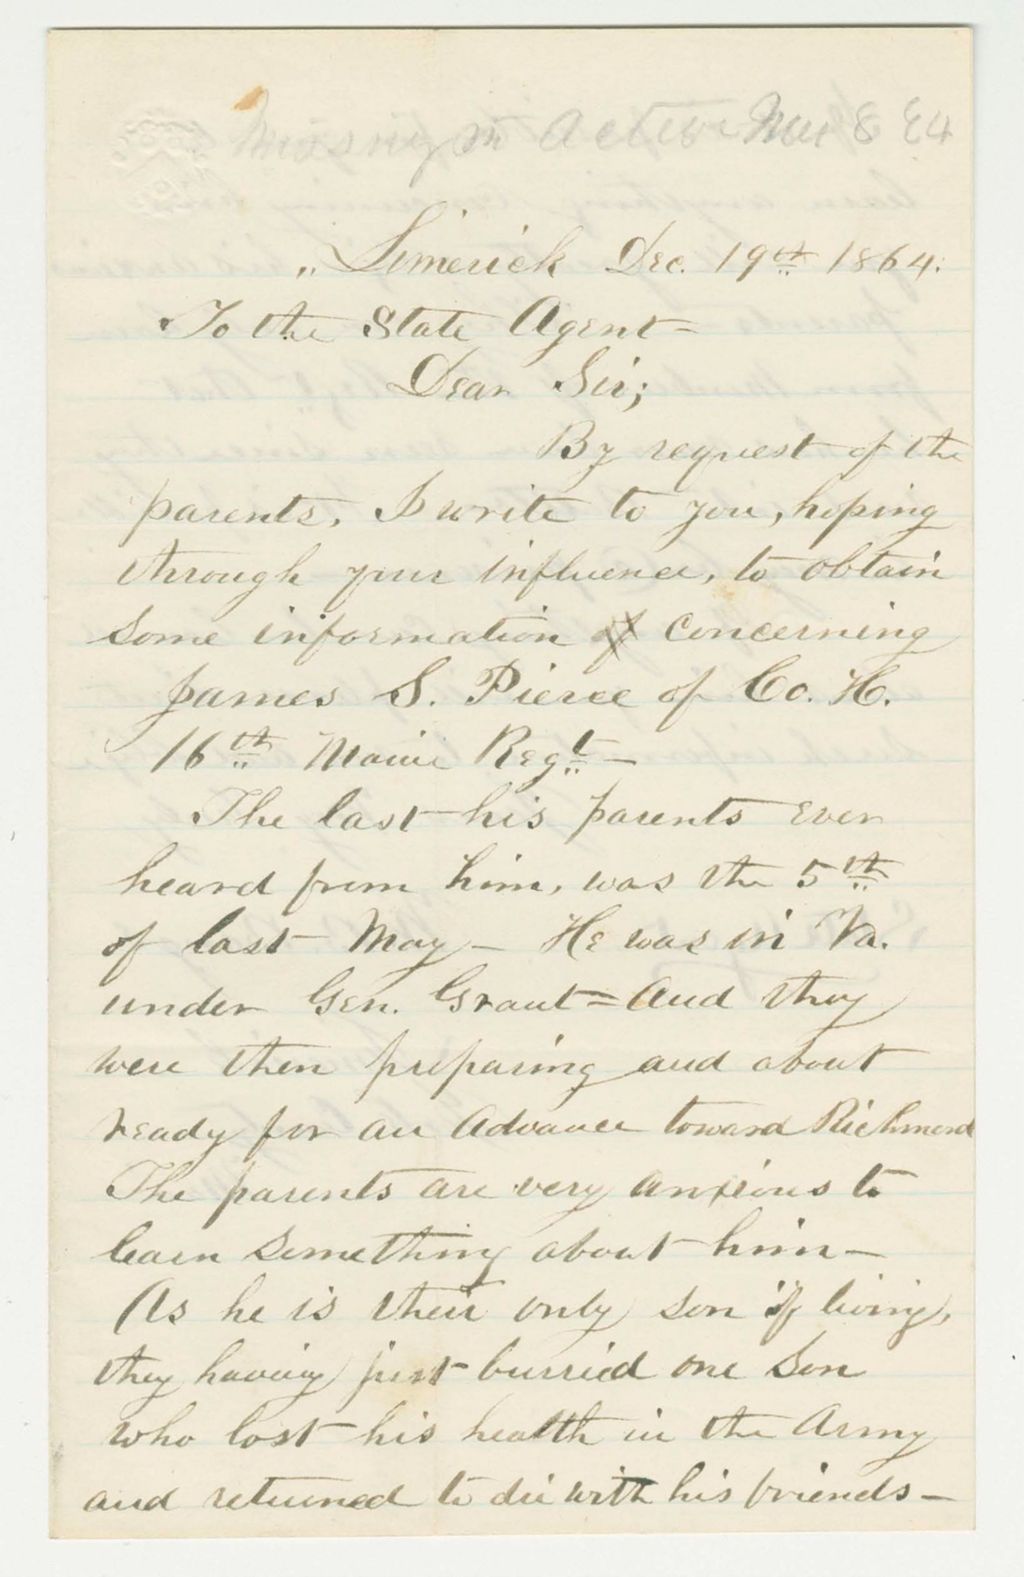 Missing in Action May 8 64
„ Limerick Dec. 19th 1864.
To the State Agent -
Dear Sir;
By request of the
parents, I write to you, hoping
through your influence, to obtain
some information of concerning
James S. Pierce of Co. H.
16th Maine Regt -
The last his parents ever
heard from him, was the 5th
of last May - He was in Va.
under Gen. Grant = And they
were then preparing and about
ready for an advance toward Richmond
The parents are very anxious to
learn something about him -
As he is their only son if living,
they having just burried one son
who lost his health in the Army
and returned to die with his friends -